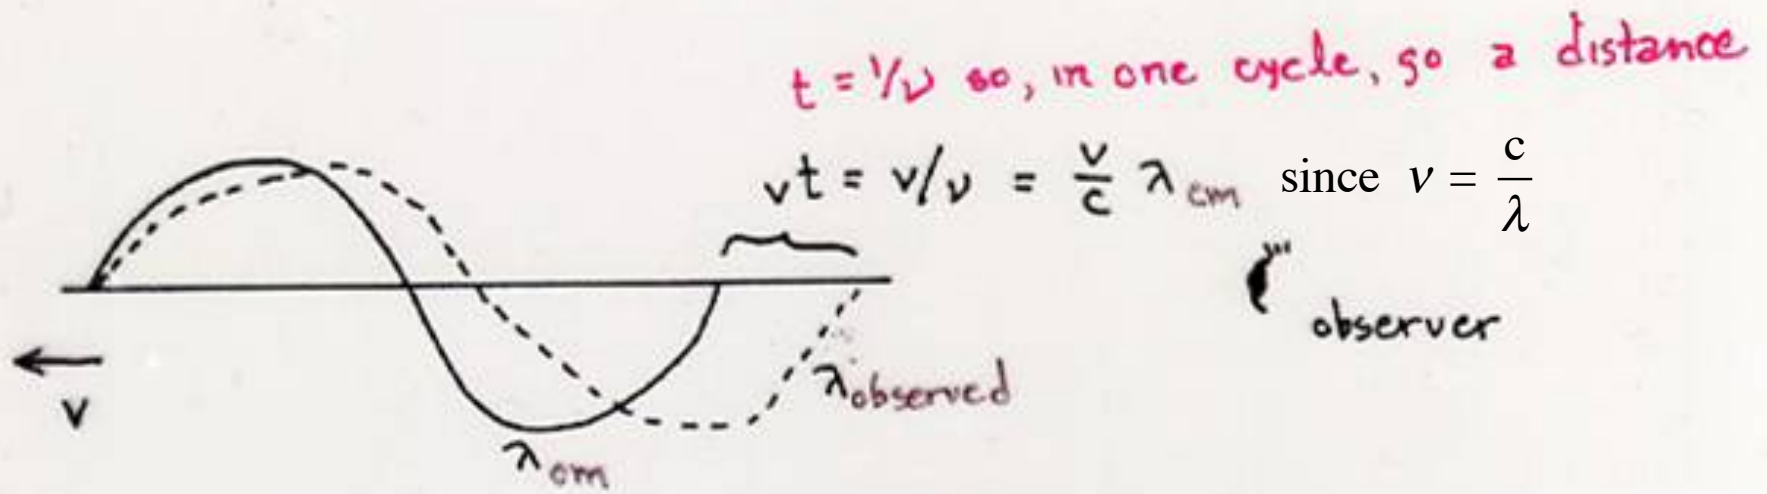 t = 1/ν so, in one cycle, go a distance
vt = v/ν = v/c λem since ν = c/λ
observer
v
λobserved
λem